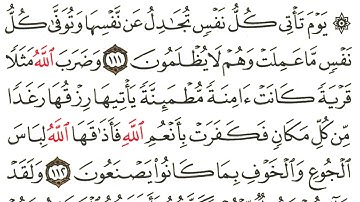 ۞ يَوْمَ تَأْتِى كُلُّ نَفْسٍ تُجَٰدِلُ عَن نَّفْسِهَا وَتُوَفَّىٰ كُلُّ
نَفْسٍ مَّا عَمِلَتْ وَهُمْ لَا يُظْلَمُونَ ١١١ وَضَرَبَ اللَّهُ مَثَلًا
قَرْيَةً كَانَتْ ءَامِنَةً مُّطْمَئِنَّةً يَأْتِيهَا رِزْقُهَا رَغَدًا
مِّن كُلِّ مَكَانٍ فَكَفَرَتْ بِأَنْعُمِ اللَّهِ فَأَذَٰقَهَا اللَّهُ لِبَاسَ
الْجُوعِ وَالْخَوْفِ بِمَا كَانُوا۟ يَصْنَعُونَ ١١٢ وَلَقَدْ